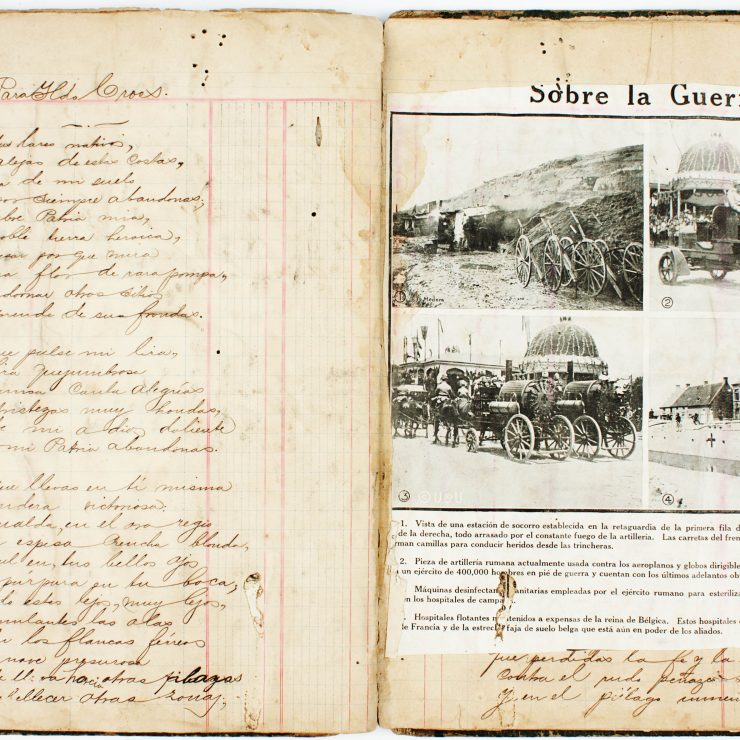 Para Ylda Croes.
lares nativos,
alejas de estas costas,
de mi suelo
por siempre abandonas,
Patria mia,
noble tierra heroica,
por que mira
flor de rara pompa,
adornar otros
de sus frondas.
que pulse mi lira,
quejumbrosa
Canta alegrías
tristezas muy hondas,
mi a dios doliente
mi Patria abandonas.
que llevas en tí misma
bandera victoriosa:
gualda, en el oro regio
espesa blonda,
azul en, tus bellos ojos
purpura en tu boca,
estes lejos, muy lejos,
las alas
en los flancos férreos
nave presurosa
otras playas
otras zonas,
Sobre la Guerr
① Medem
②
③
④
© U2U
1. Vista de una estación de socorro establecida en la retaguardia de la primera fila d
de la derecha, todo arrasado por el constante fuego de la artilleria. Las carretas del fren
man camillas para conducir heridos desde las trincheras.
2. Pieza de artilleria rumana actualmente usada contra los aeroplanos y globos dirigible
un ejército de 400,000 hombres en pié de guerra y cuentan con los últimos adelantos ob
Máquinas desinfectan anitarias empleadas por el ejército rumano para esteriliza
en los hospitales de campa
Hospitales flotantes m tenidos a expensas de la reina de Bélgica. Estos hospitales
de Francia y de la estrec faja de suelo belga que está aún en poder de los aliados.
que perdidas la fe y la
contra el rudo peñazco
Y en el piélago inmen